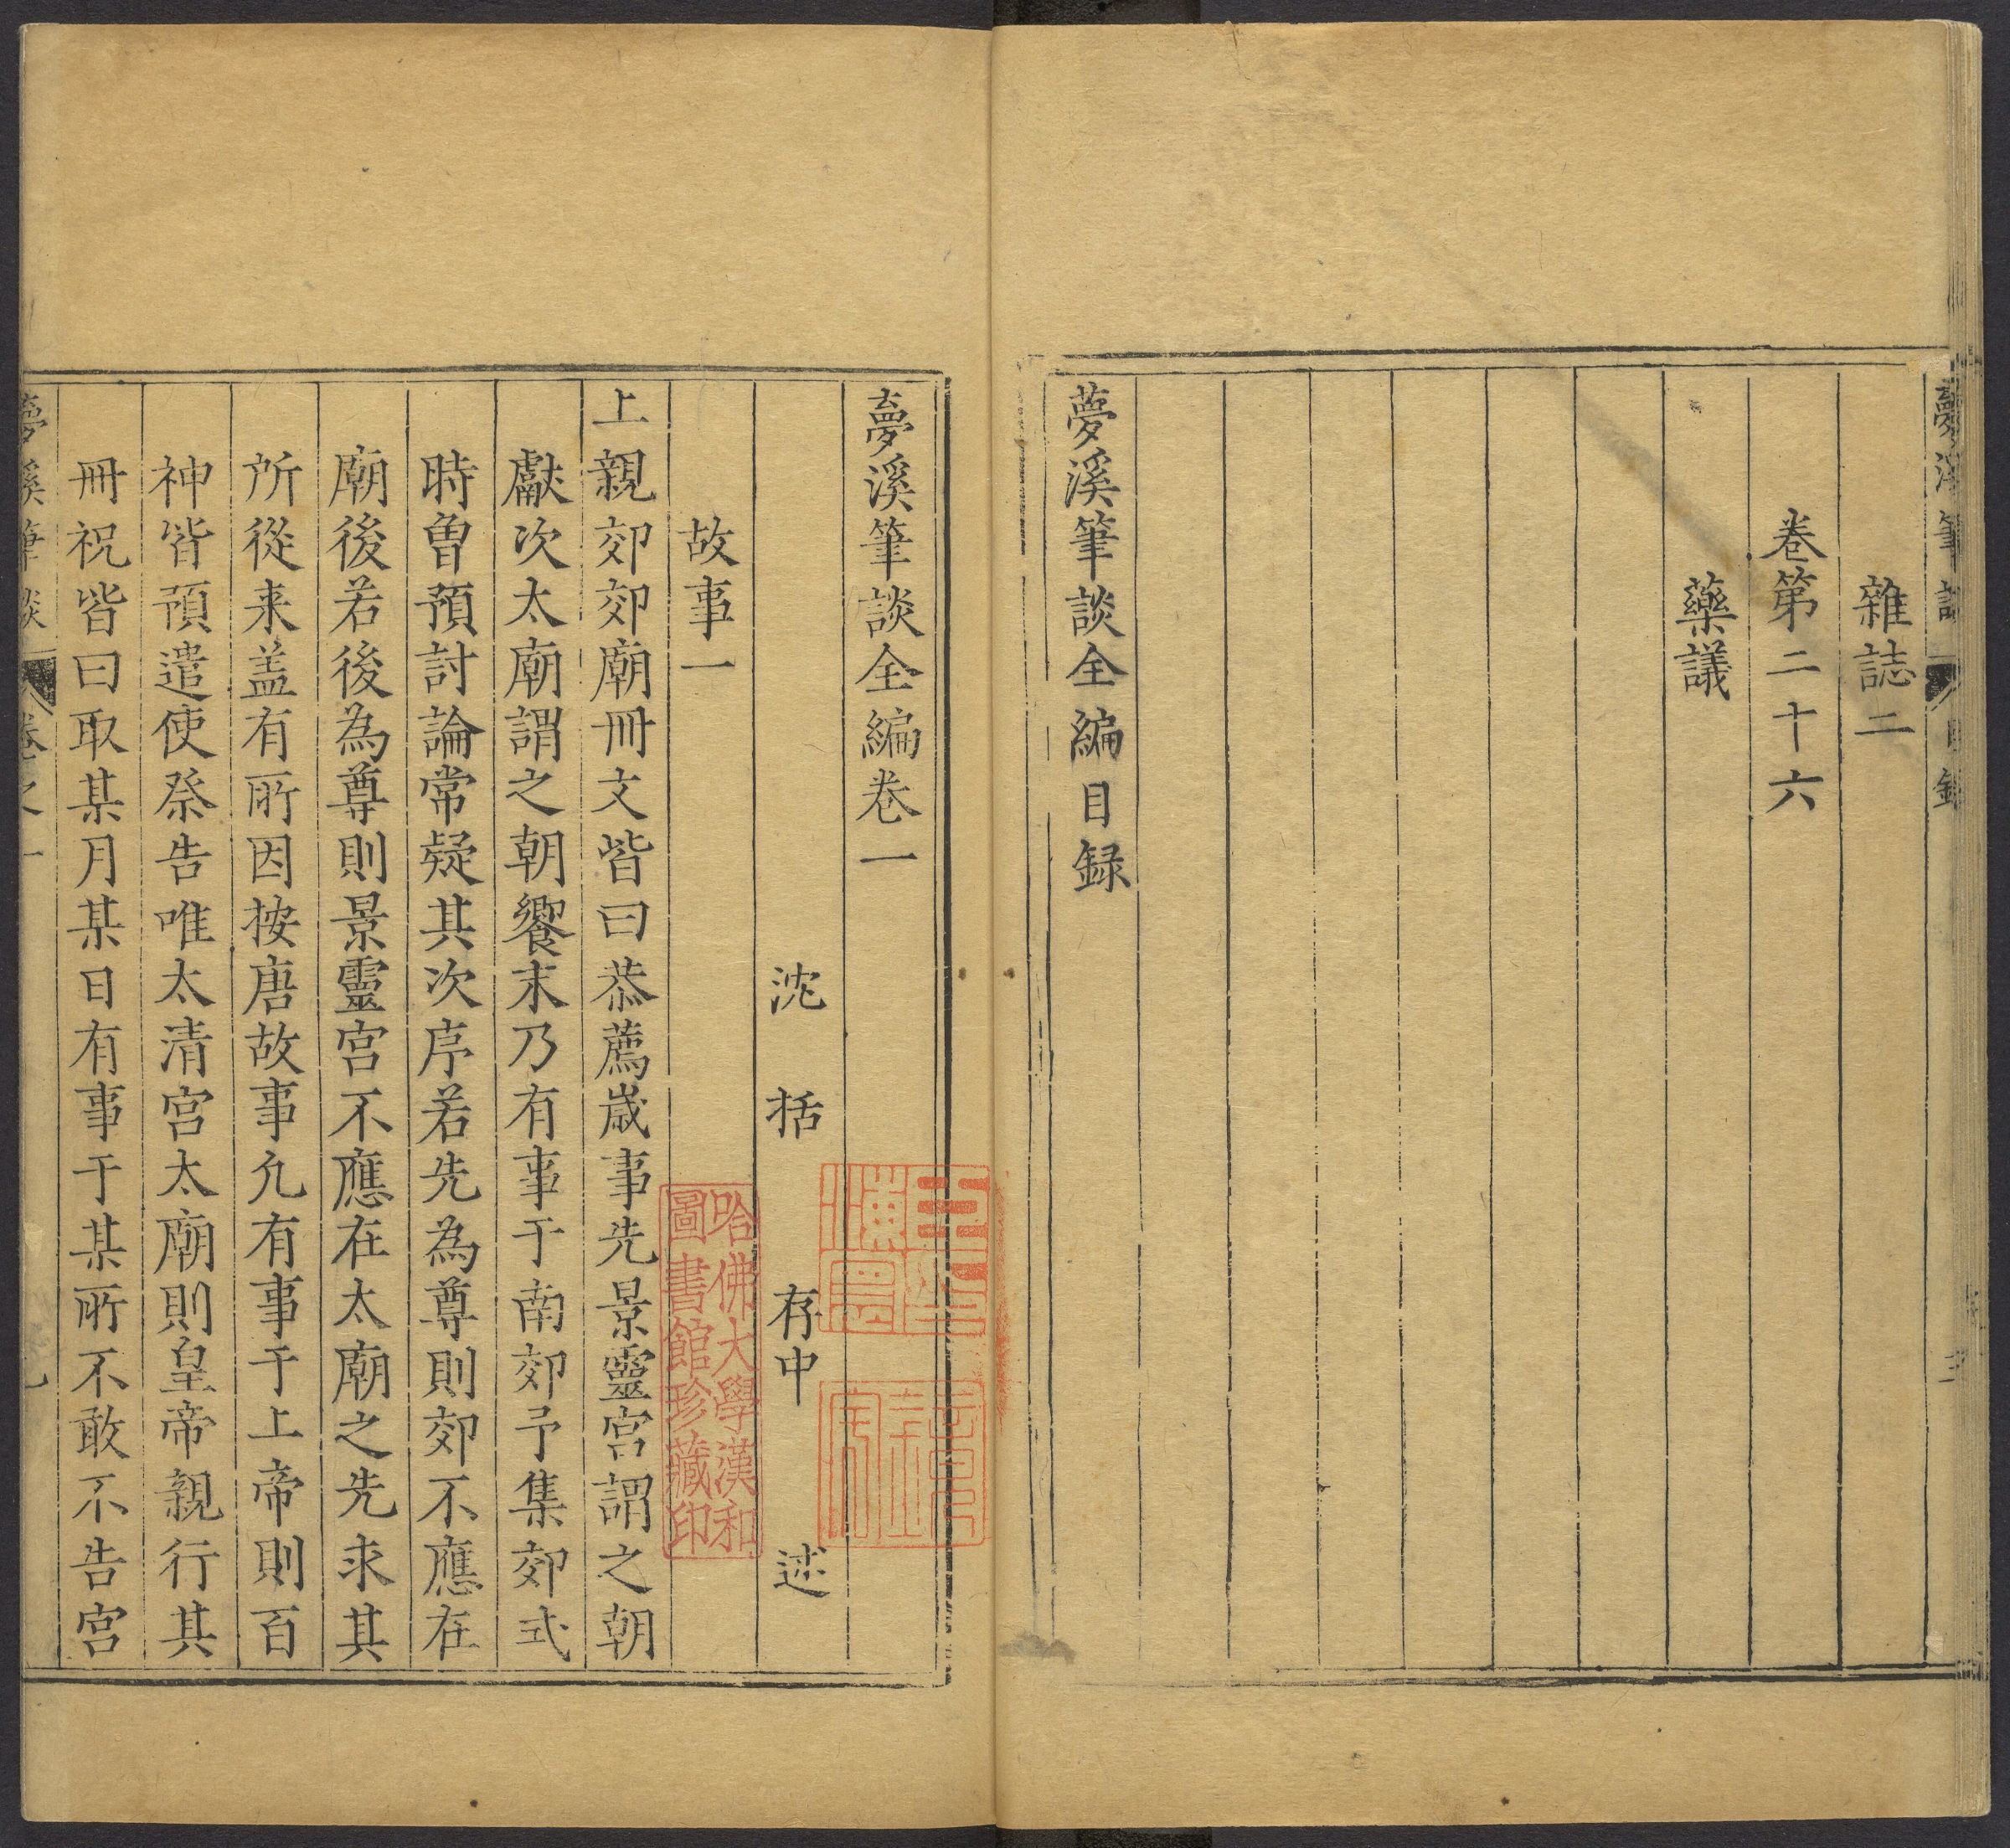 雜誌二
卷第二十六
藥議
夢溪筆談全編目録
夢溪筆談全編卷一
沈括存中述
故事一
上親郊郊廟冊文皆曰恭薦歲事先景靈宮謂之朝
獻次太廟謂之朝饗末乃有事于南郊予集郊式
時曾預討論常疑其次序若先為尊則郊不應在
廟後若後為尊則景靈宮不應在太廟之先求其
所從来盖有所因按唐故事凢有事于上帝則百
神皆預遣使祭告唯太清宮太廟則皇帝親行其
冊祝皆曰取某月某日有事于某所不敢不告宮
哈佛大學漢和
圖書館珍藏印